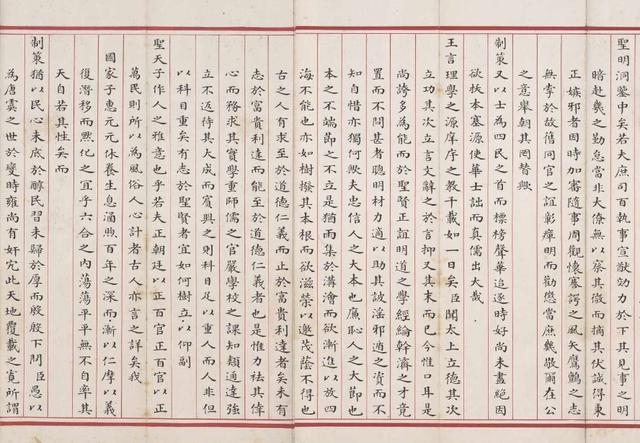 聖明洞鑒中矣若夫庶司百執事宣猷効力於下其見事之明
暗赴幾之勤怠當非大僚無以察其微而摘其伏誠得秉
正嫉邪者因時加審隨事周觀懷蹇諤之風矢鷹鸇之志
無牽於故舊同官之誼彰癉明而勸懲當庶幾敬爾在公
之意舉朝其罔替歟
制策又以士為四民之首而標榜聲華追逐時好尚未盡絕因
欲拔本塞源使華士詘而真儒出大哉
王言理學之源庠序之教千載如一日矣臣聞太上立德其次
立功其次立言文辭之於言抑又其末而已今惟口耳是
尚誇多為能而於聖賢正誼明道之學經綸幹濟之才竟
置而不問甚者聰明材力適以助其詖淫邪遁之資而不
知自惜亦獨何歟夫忠信人之大本也廉恥人之大節也
本之不端節之不立是猶雨集於溝澮而欲漸進以放四
海不能也亦如樹撥其本根而欲滋榮以邀茂蔭不得也
古之人有求至於道德仁義而止於富貴利達者矣未有
志於富貴利達而能至於道德仁義者也是惟力袪其倖
心而務求其實學重師儒之官嚴學校之課知類通達強
立不返待其大成而賓興之則科目足以重人而人非但
以科目重矣有志於聖賢者宜如何樹立以仰副
聖天子作人之雅意也乎若夫正朝廷以正百官正百官以正
萬民則所以為風俗人心計者古人亦言之詳矣我
國家子惠元元休養生息涵煦百年之深而漸以仁摩以義
復潛移而默化之宜乎六合之內蕩蕩平平無不自率其
天自若其性矣而
制策猶以民心未底於醇民習未歸於厚而殷殷下問臣愚以
為唐虞之世於變時雍尚有奸宄此天地覆載之寬所謂